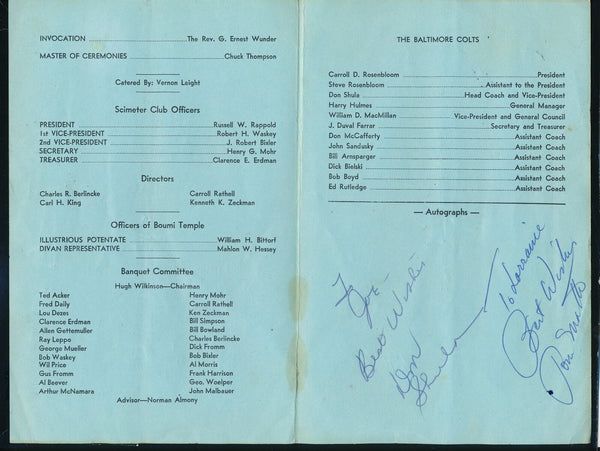 INVOCATION The Rev. G. Ernest Wunder
MASTER OF CEREMONIES Chuck Thompson
Catered By: Vernon Leight
Scimeter Club Officers
PRESIDENT Russell W. Rappold
1st VICE-PRESIDENT Robert H. Waskey
2nd VICE-PRESIDENT J. Robert Bixler
SECRETARY Henry G. Mohr
TREASURER Clarence E. Erdman
Directors
Charles R. Berlincke Carroll Rathell
Carl H. King Kenneth K. Zeckman
Officers of Boumi Temple
ILLUSTRIOUS POTENTATE William H. Bittorf
DIVAN REPRESENTATIVE Mahlon W. Hessey
Banquet Committee
Hugh Wilkinson—Chairman
Ted Acker Henry Mohr
Fred Daily Carroll Rathell
Lou Dezes Ken Zeckman
Clarence Erdman Bill Simpson
Allen Gettemuller Bill Bowland
Ray Leppo Charles Berlincke
George Mueller Dick Fromm
Bob Waskey Bob Bixler
Wil Price Al Morris
Gus Fromm Frank Harrison
Al Beever Geo. Woelper
Arthur McNamara John Malbauer
Advisor—Norman Almony
THE BALTIMORE COLTS
Carroll D. Rosenbloom President
Steve Rosenbloom Assistant to the President
Don Shula Head Coach and Vice-President
Harry Hulmes General Manager
William D. MacMillan Vice-President and General Council
J. Duval Farrar Secretary and Treasurer
Don McCafferty Assistant Coach
John Sandusky Assistant Coach
Bill Arnsparger Assistant Coach
Dick Bielski Assistant Coach
Bob Boyd Assistant Coach
Ed Rutledge Assistant Coach
— Autographs —
To Joe-
Best Wishes
Don
Shula
To Lorraine
Best Wishes
Tom Matte